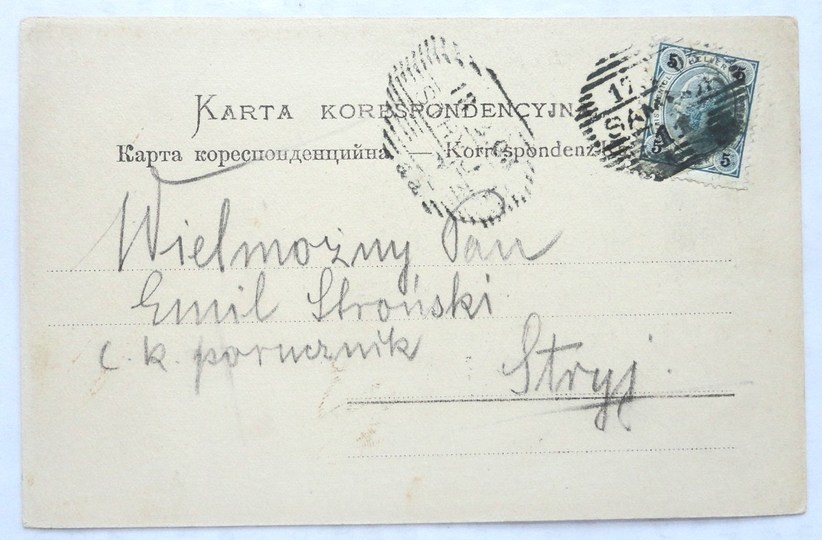 KARTA KORESPONDENCYJNA
Карта кореспонденцийна — Korrespondenz-Ka
5 5
5 5
17
SAM
Wielmożny Pan
Emil Stroński
c. k. porucznik
Stryj.